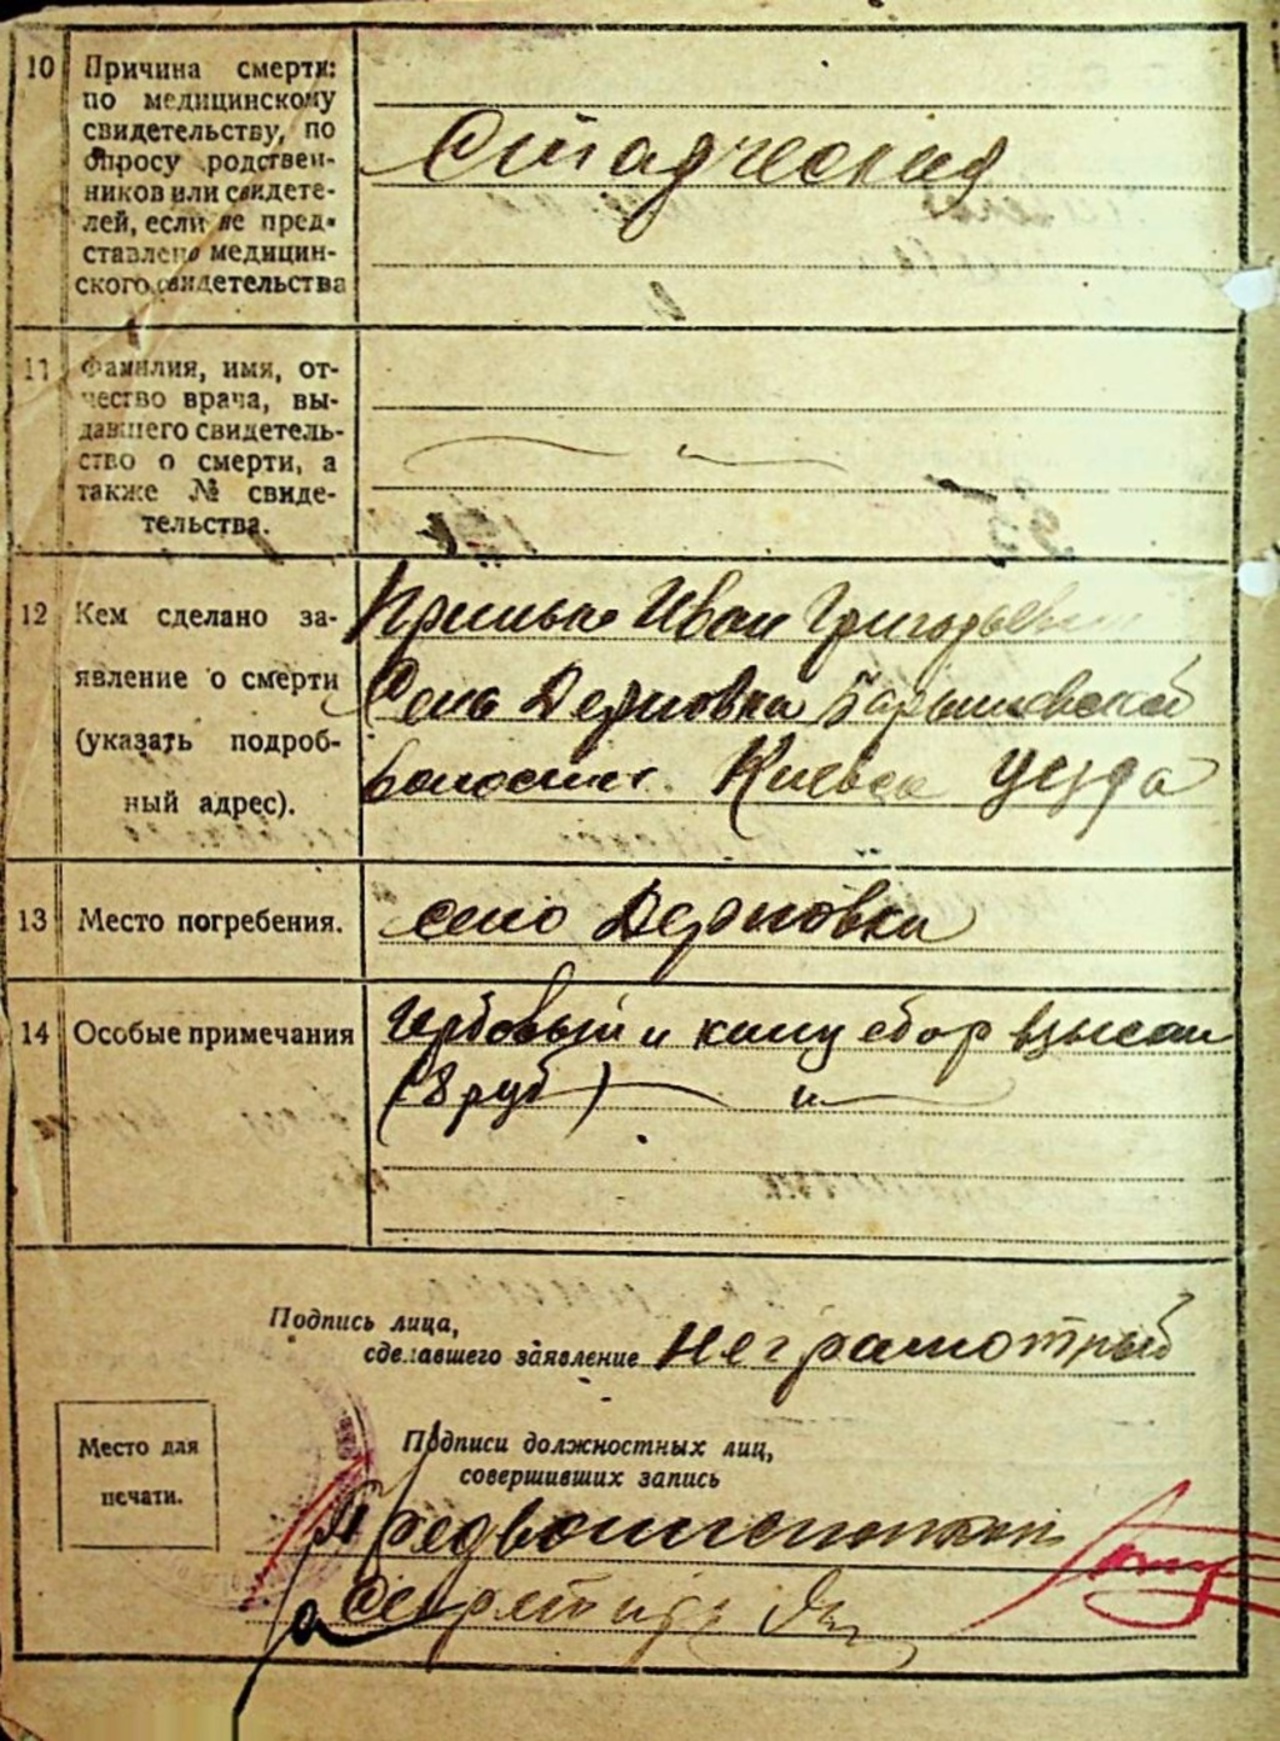 10 Причина смерти:
по медицинскому
свидетельству, по
опросу родствен-
ников или свидете-
лей, если не пред-
ставлено медицин-
ского свидетельства
11 Фамилия, имя, от-
чество врача, вы-
давшего свидетель-
ство о смерти, а
также № свиде-
тельства.
12 Кем сделано за-
явление о смерти
(указать подроб-
ный адрес).
Иван Григорьевич
Село Дерновка Барышевской
волости. Киевск уезда
13 Место погребения.
село Дерновка
14 Особые примечания
Гербовый и канц сбор взыскан
(8 руб)
Подпись лица,
сделавшего заявление Неграмотный
Место для
печати.
Подписи должностных лиц,
совершивших запись
Предволисполком
Секретарь